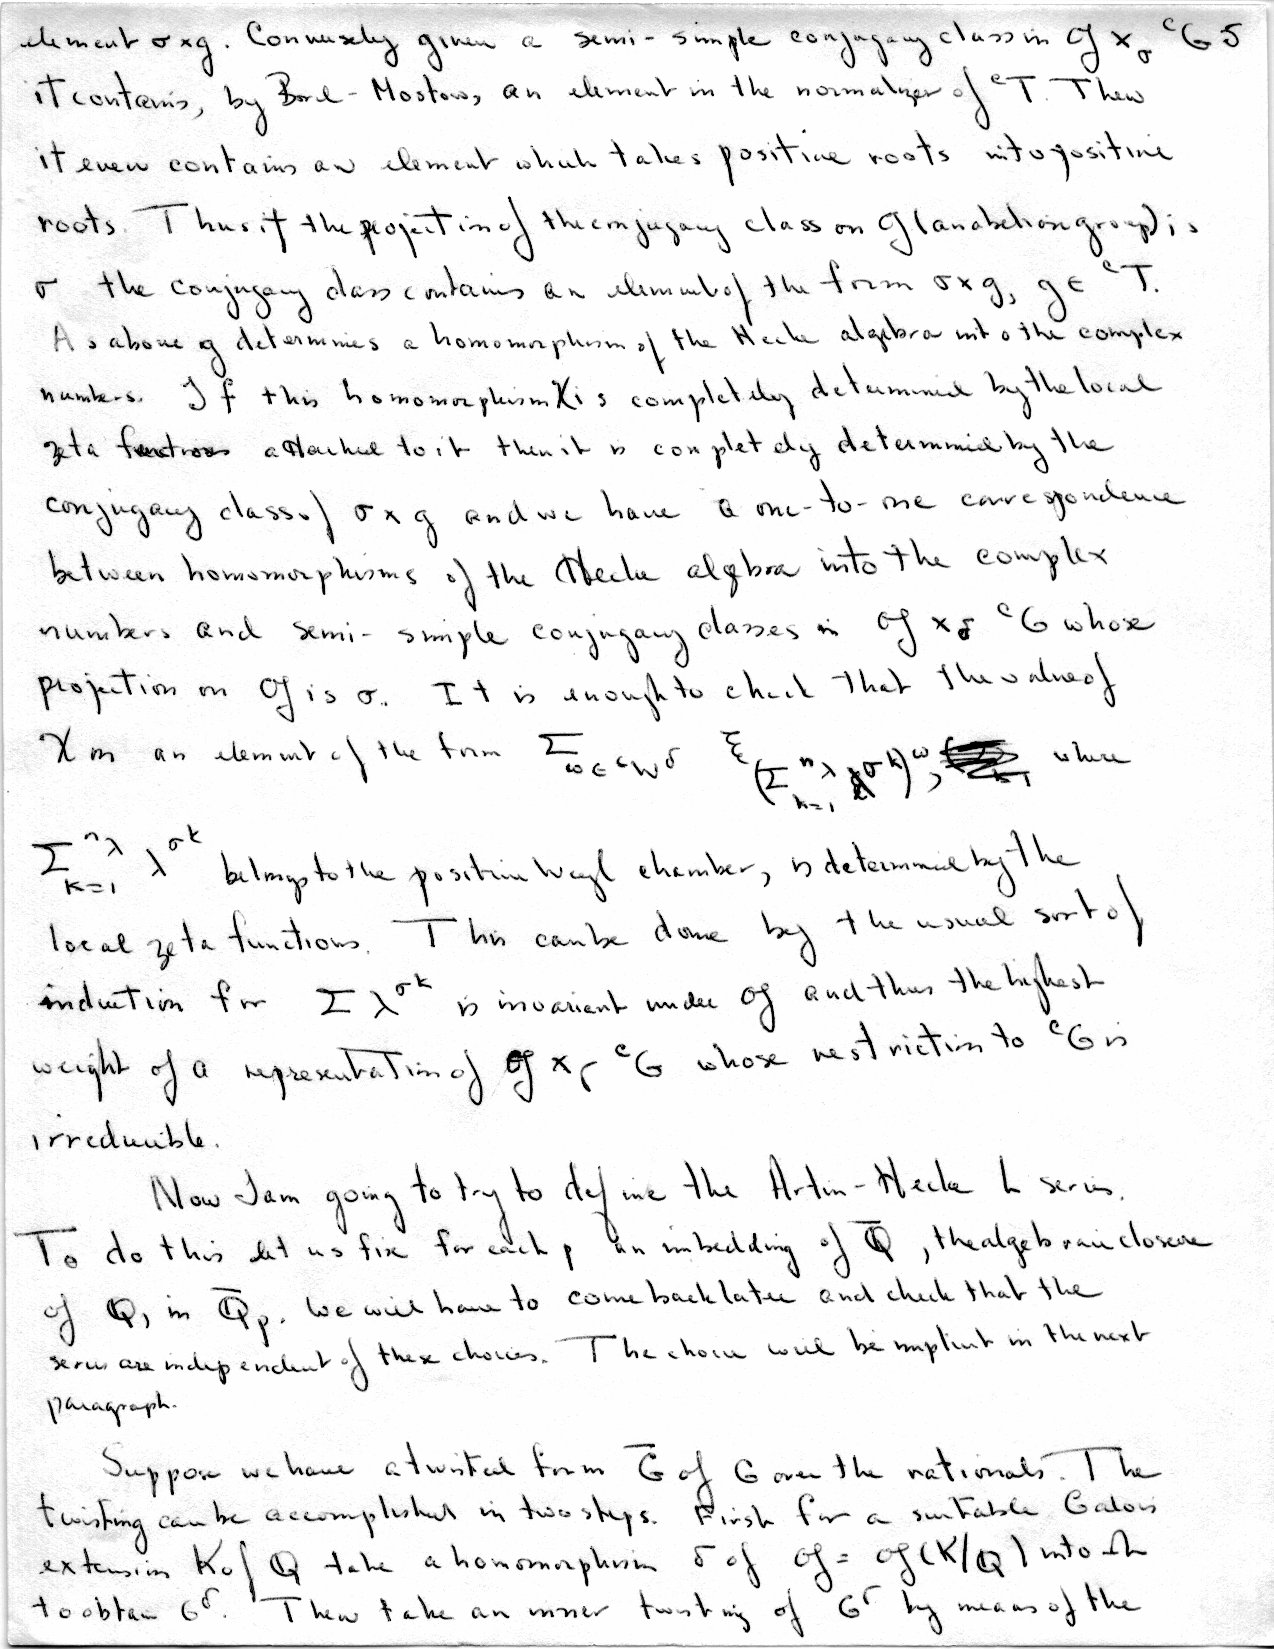 element σ×g. Conversely given a semi-simple conjugacy class in 𝔤 ×_σ ᶜG 5
it contains, by Borel-Mostow, an element in the normalizer of ᶜT. Then
it even contains an element which takes positive roots into positive
roots. Thus if the projection of the conjugacy class on 𝔤 (an abelian group) is
σ the conjugacy class contains an element of the form σ×g, g ∈ ᶜT.
As above g determines a homomorphism of the Hecke algebra into the complex
numbers. If this homomorphism χ is completely determined by the local
zeta functions attached to it then it is completely determined by the
conjugacy class of σ×g and we have a one-to-one correspondence
between homomorphisms of the Hecke algebra into the complex
numbers and semi-simple conjugacy classes in 𝔤 ×_δ ᶜG whose
projection on 𝔤 is σ. It is enough to check that the value of
χ on an element of the form Σ_{ω∈ᶜW^σ} ξ_{(Σ_{k=1}^{n_λ} λ^{σ^k})^ω}, where
Σ_{k=1}^{n_λ} λ^{σ^k} belongs to the positive Weyl chamber, is determined by the
local zeta functions. This can be done by the usual sort of
induction for Σ λ^{σ^k} is invariant under 𝔤 and thus the highest
weight of a representation of 𝔤 ×_δ ᶜG whose restriction to ᶜG is
irreducible.
Now I am going to try to define the Artin-Hecke L series.
To do this let us fix for each p an imbedding of Q̄, the algebraic closure
of Q, in Q̄_p. We will have to come back later and check that the
series are independent of these choices. The choice will be implicit in the next
paragraph.
Suppose we have a twisted form G̅ of G over the rationals. The
twisting can be accomplished in two steps. First for a suitable Galois
extension K of Q take a homomorphism δ of 𝔤 = 𝔤(K/Q) into Ω
to obtain G^δ. Then take an inner twisting of G^δ by means of the